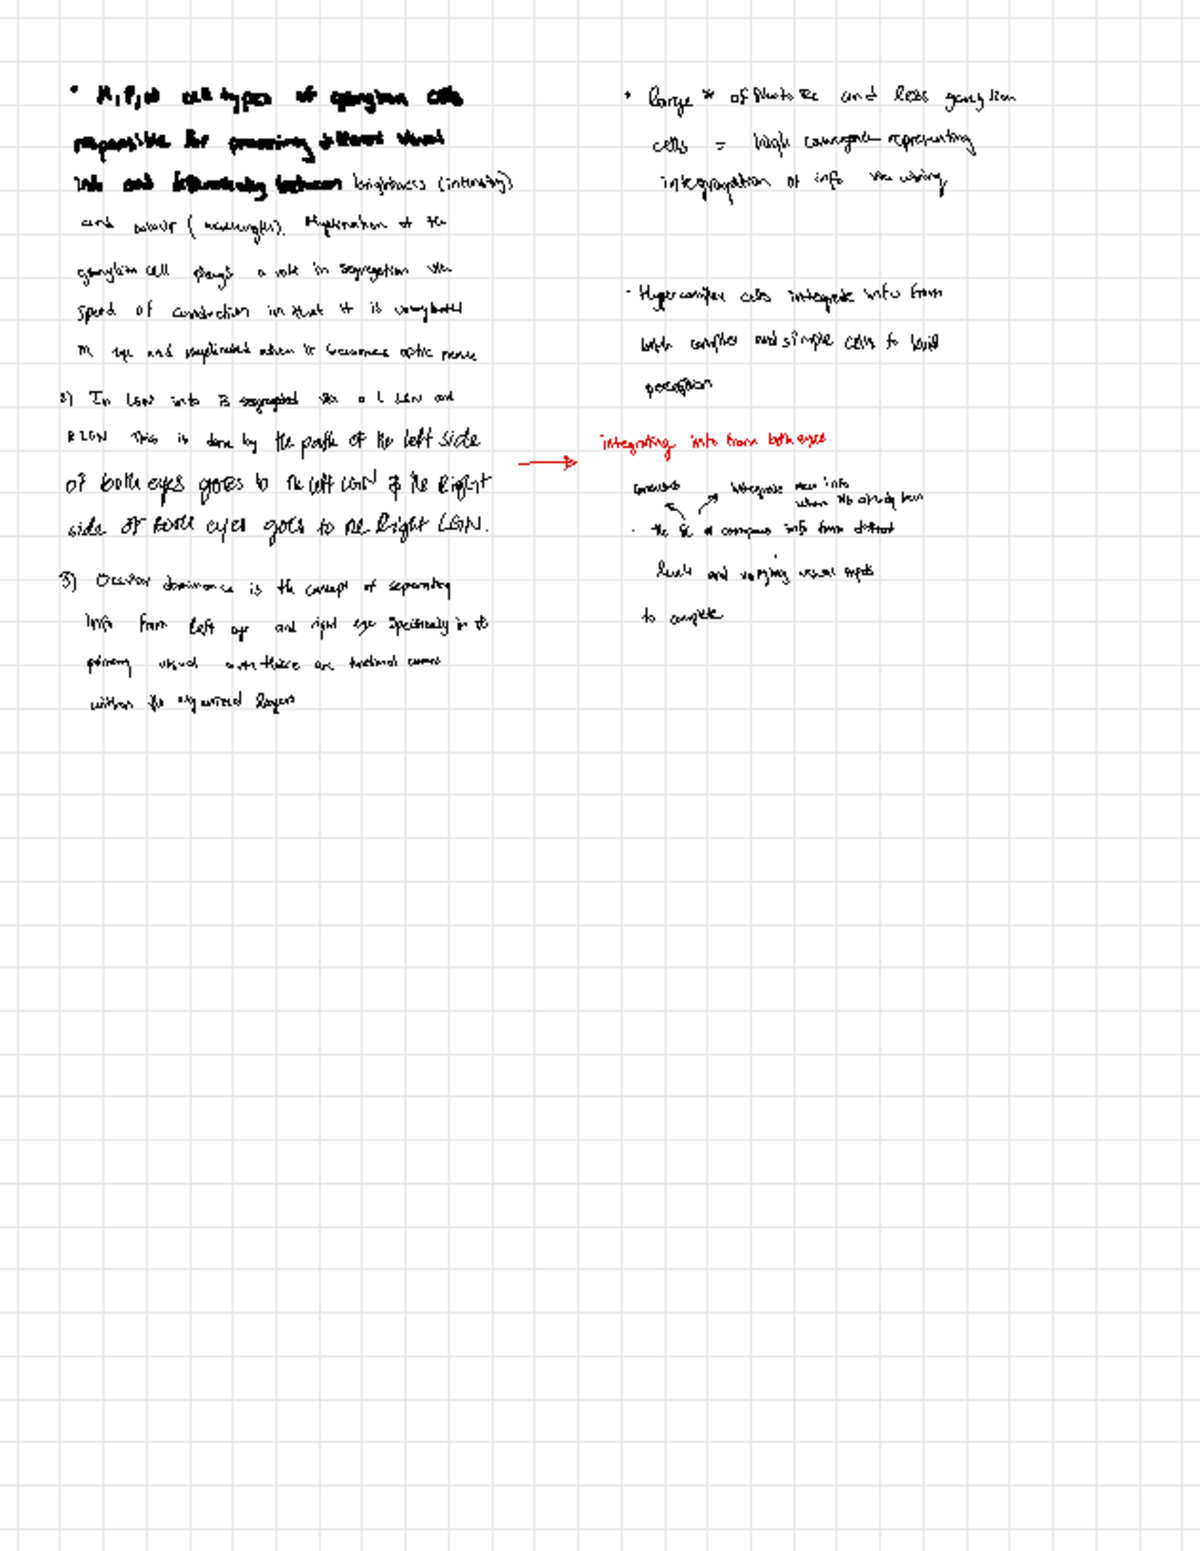 • M, P, W cell types of ganglion cells
responsible for processing different visual
info and between brightness (intensity)
and colour (wavelengths). Myelination of the
ganglion cell plays a role in segregation via
speed of conduction in that it is
in eye and myelinated when it becomes optic nerve
2) In LGN info is segregated via a L LGN and
R LGN This is done by the path of the left side
of both eyes goes to the left LGN & the Right
side of both eyes goes to the Right LGN.
3) Ocular dominance is the concept of separating
info from left eye and right eye specifically in the
primary visual there are
within the organized layers
• large # of Photo Rc and less ganglion
cells = high convergence representing
of info via wiring
• Hypercomplex cells integrate info from
both complex and simple cells to build
perception
→ integrating info from both eyes
integrate new info
when
• the SC compares info from different
levels and varying visual inputs
to complete